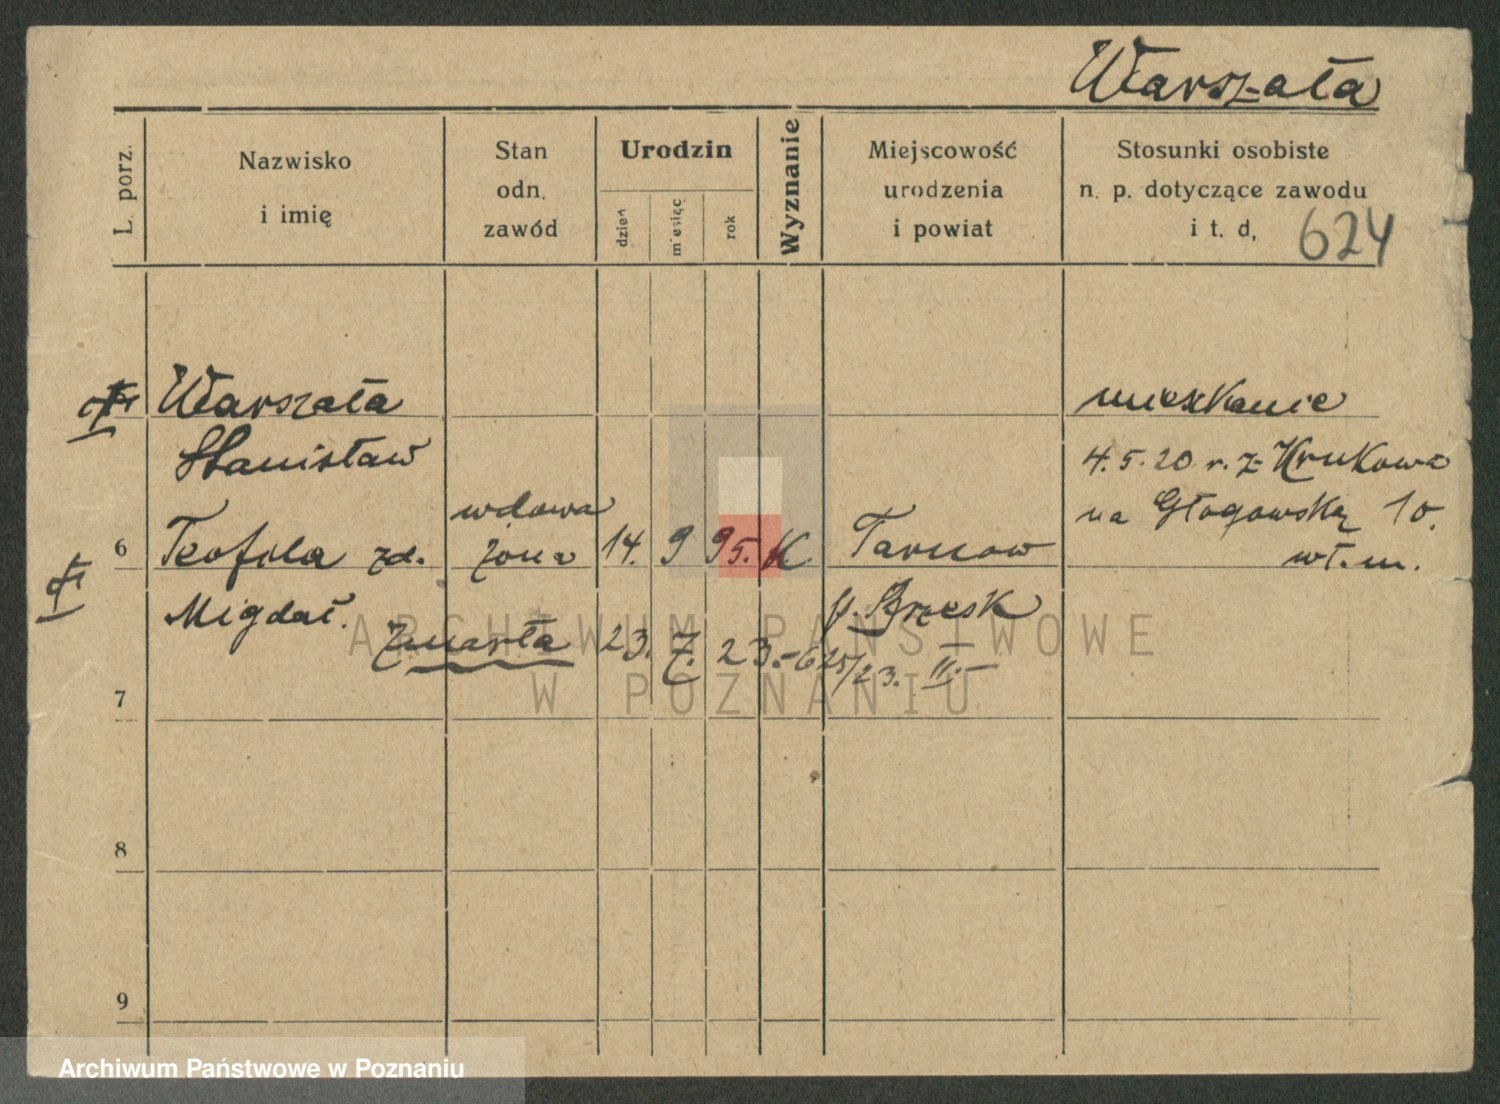 Warszała
L. porz.
Nazwisko
i imię
Stan
odn.
zawód
Urodzin
dzień
miesiąc
rok
Wyznanie
Miejscowość
urodzenia
i powiat
Stosunki osobiste
n. p. dotyczące zawodu
i t. d,
624
Warszała
Stanisław
mieszkanie
4.5.20 r. z Krukowa
na Głogowską 10.
wł. m.
wdowa
6 Teofila zd. żona 14. 9 95. K Tarnow
Migdał. p. Brzesk
zmarła 23. 7. 23.- 625/23. II.-
7
8
9
ARCHIWUM PAŃSTWOWE
W POZNANIU
Archiwum Państwowe w Poznaniu